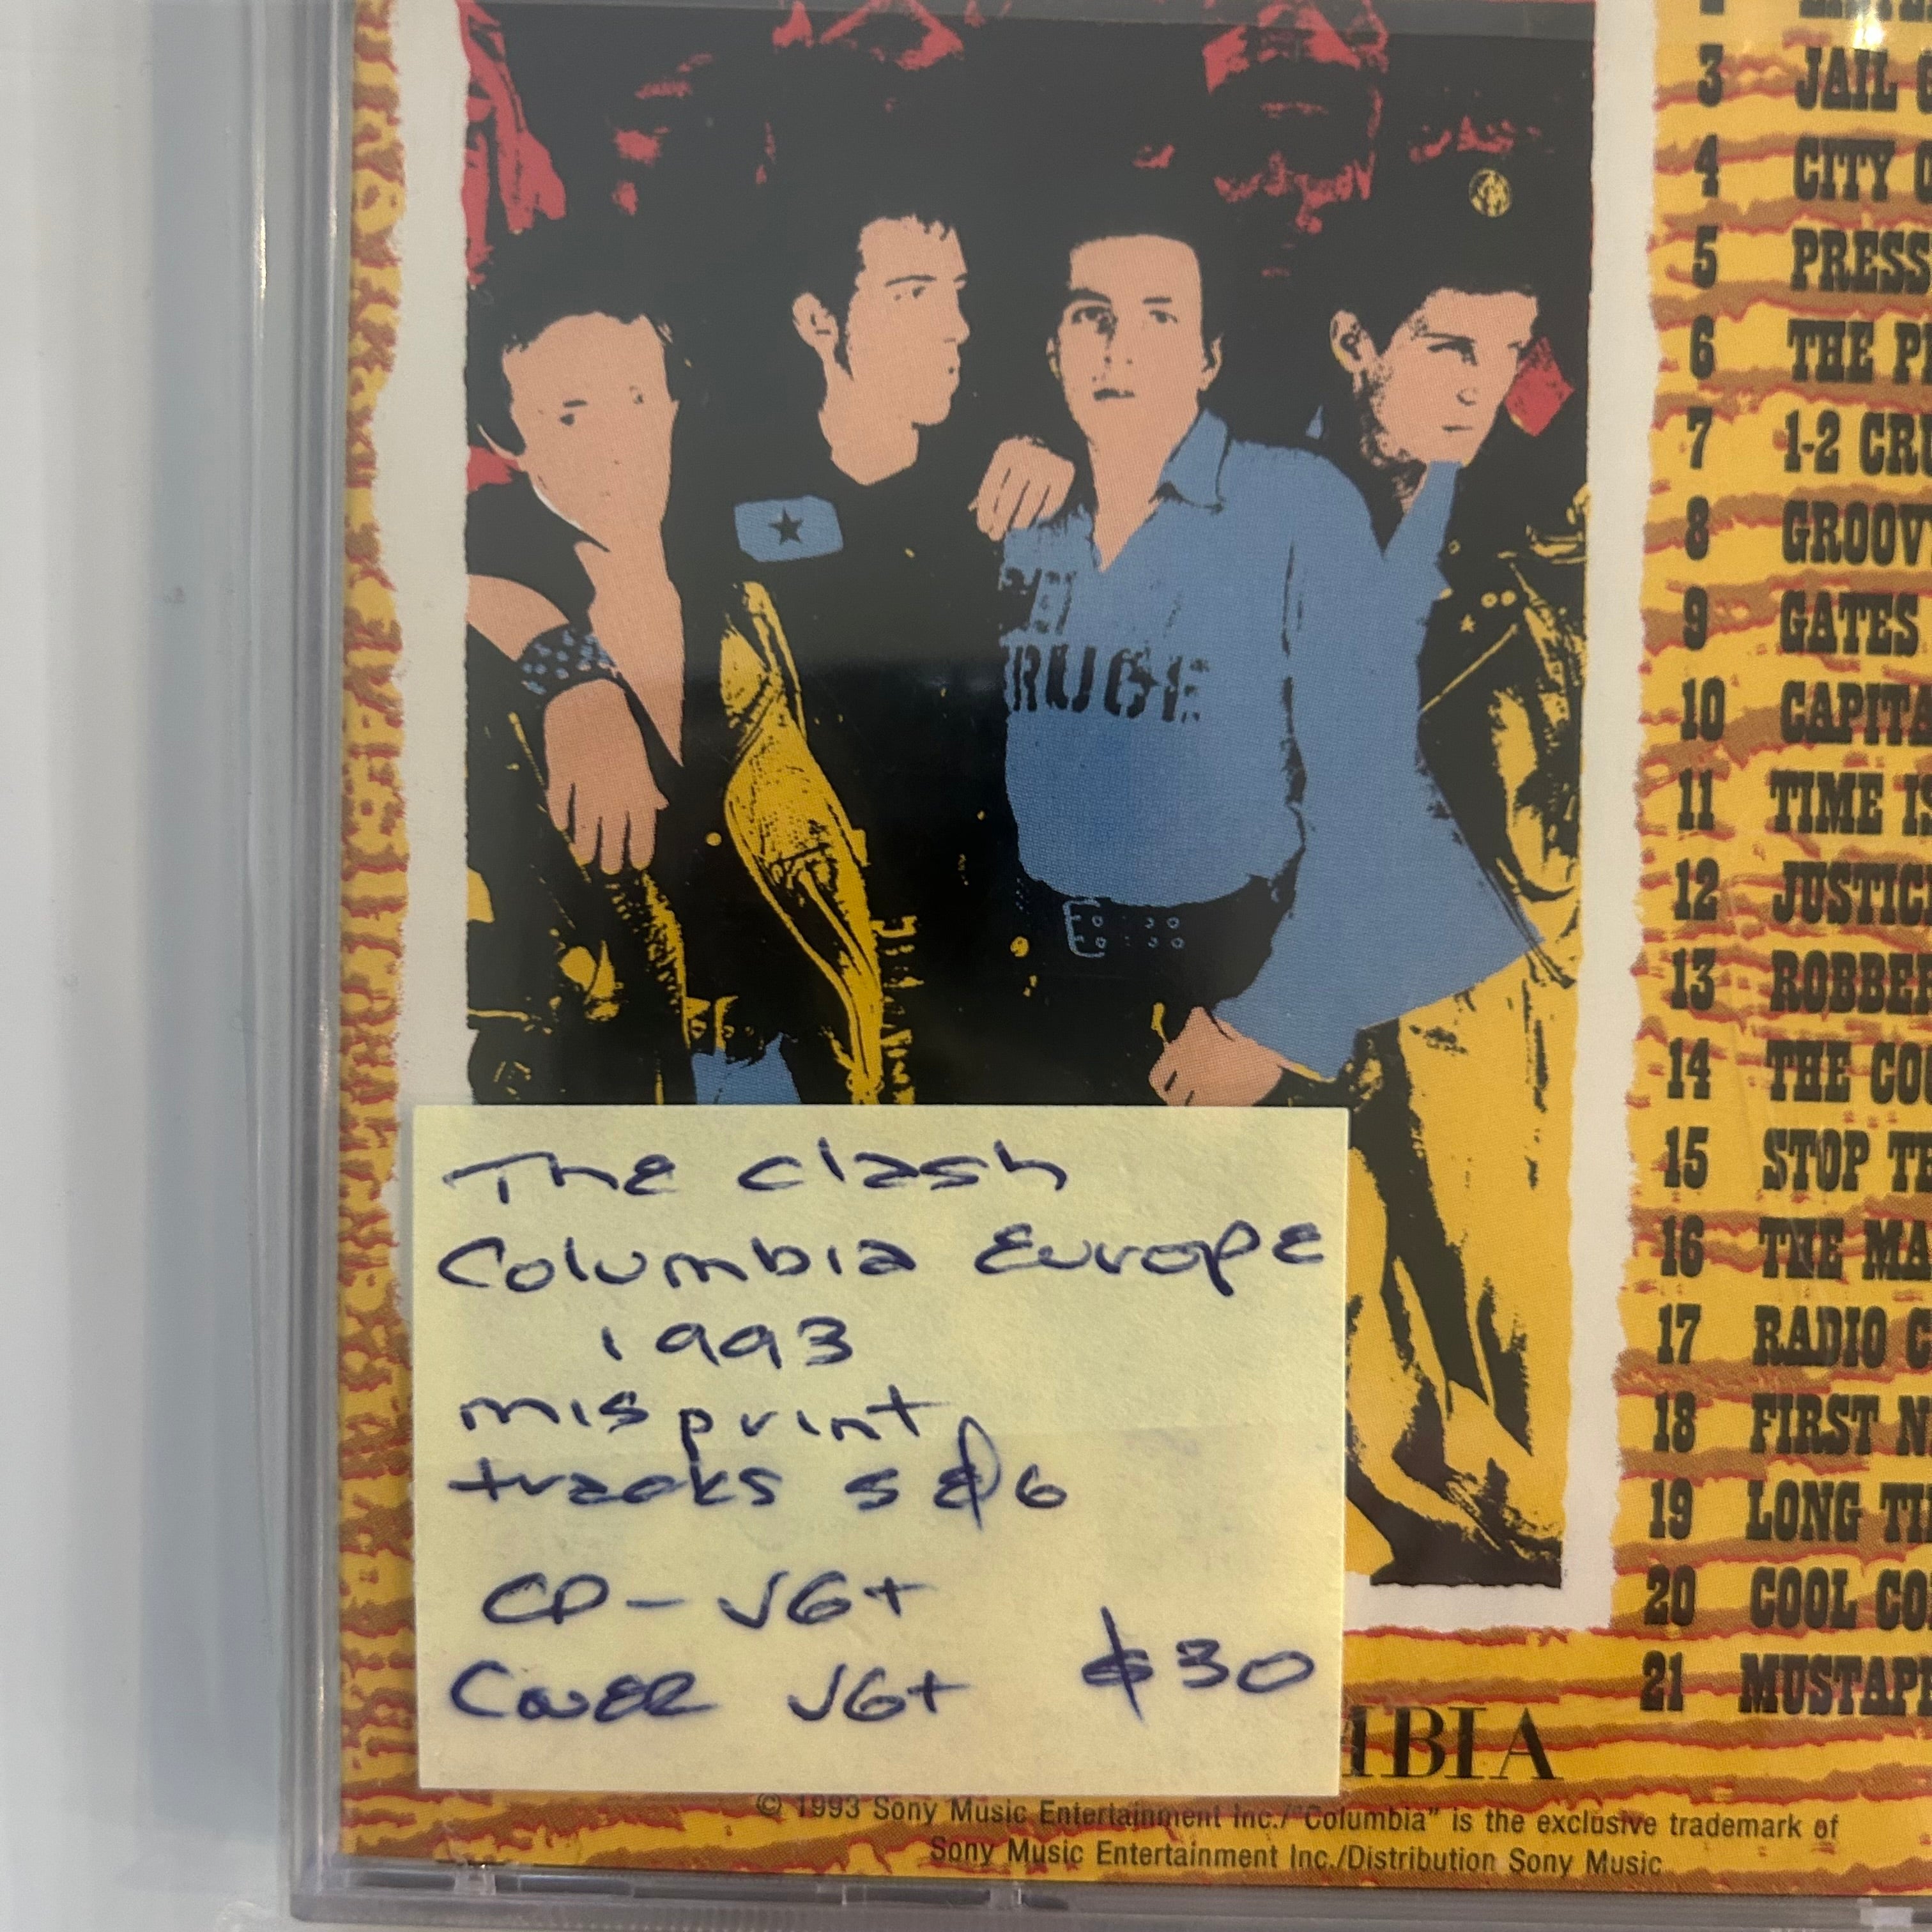 3 JAIL
4 CITY
5 PRESS
6 THE
7 1-2 CRU
8 GROOV
9 GATES
10 CAPITA
11 TIME
12 JUSTIC
13 ROBBE
14 THE CO
15 STOP
16 THE MA
17 RADIO
18 FIRST
19 LONG
20 COOL CO
21 MUSTAP
RUGE
The Clash
Columbia Europe
1993
misprint
tracks 5 & 6
CD - VG+
Cover VG+ $30
MBIA
© 1993 Sony Music Entertainment Inc./"Columbia" is the exclusive trademark of
Sony Music Entertainment Inc./Distribution Sony Music